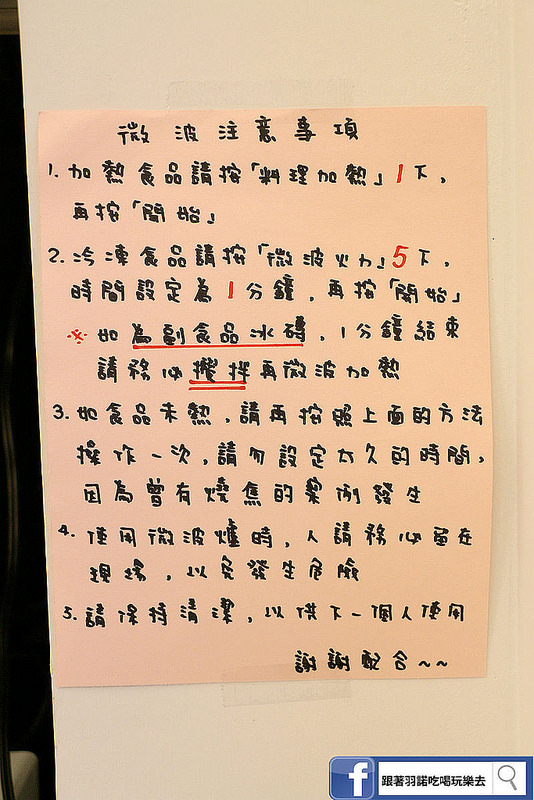 微波注意事項
1. 加熱食品請按「料理加熱」1下,
再按「開始」
2. 冷凍食品請按「微波火力」5下,
時間設定為1分鐘,再按「開始」
※ 如為副食品冰磚,1分鐘結束
請務必攪拌再微波加熱
3. 如食品未熱,請再按照上面的方法
操作一次,請勿設定太久的時間,
因為曾有燒焦的案例發生
4. 使用微波爐時,人請務必留在
現場,以免發生危險
5. 請保持清潔,以供下一個人使用
謝謝配合~~
f 跟著羽諾吃喝玩樂去